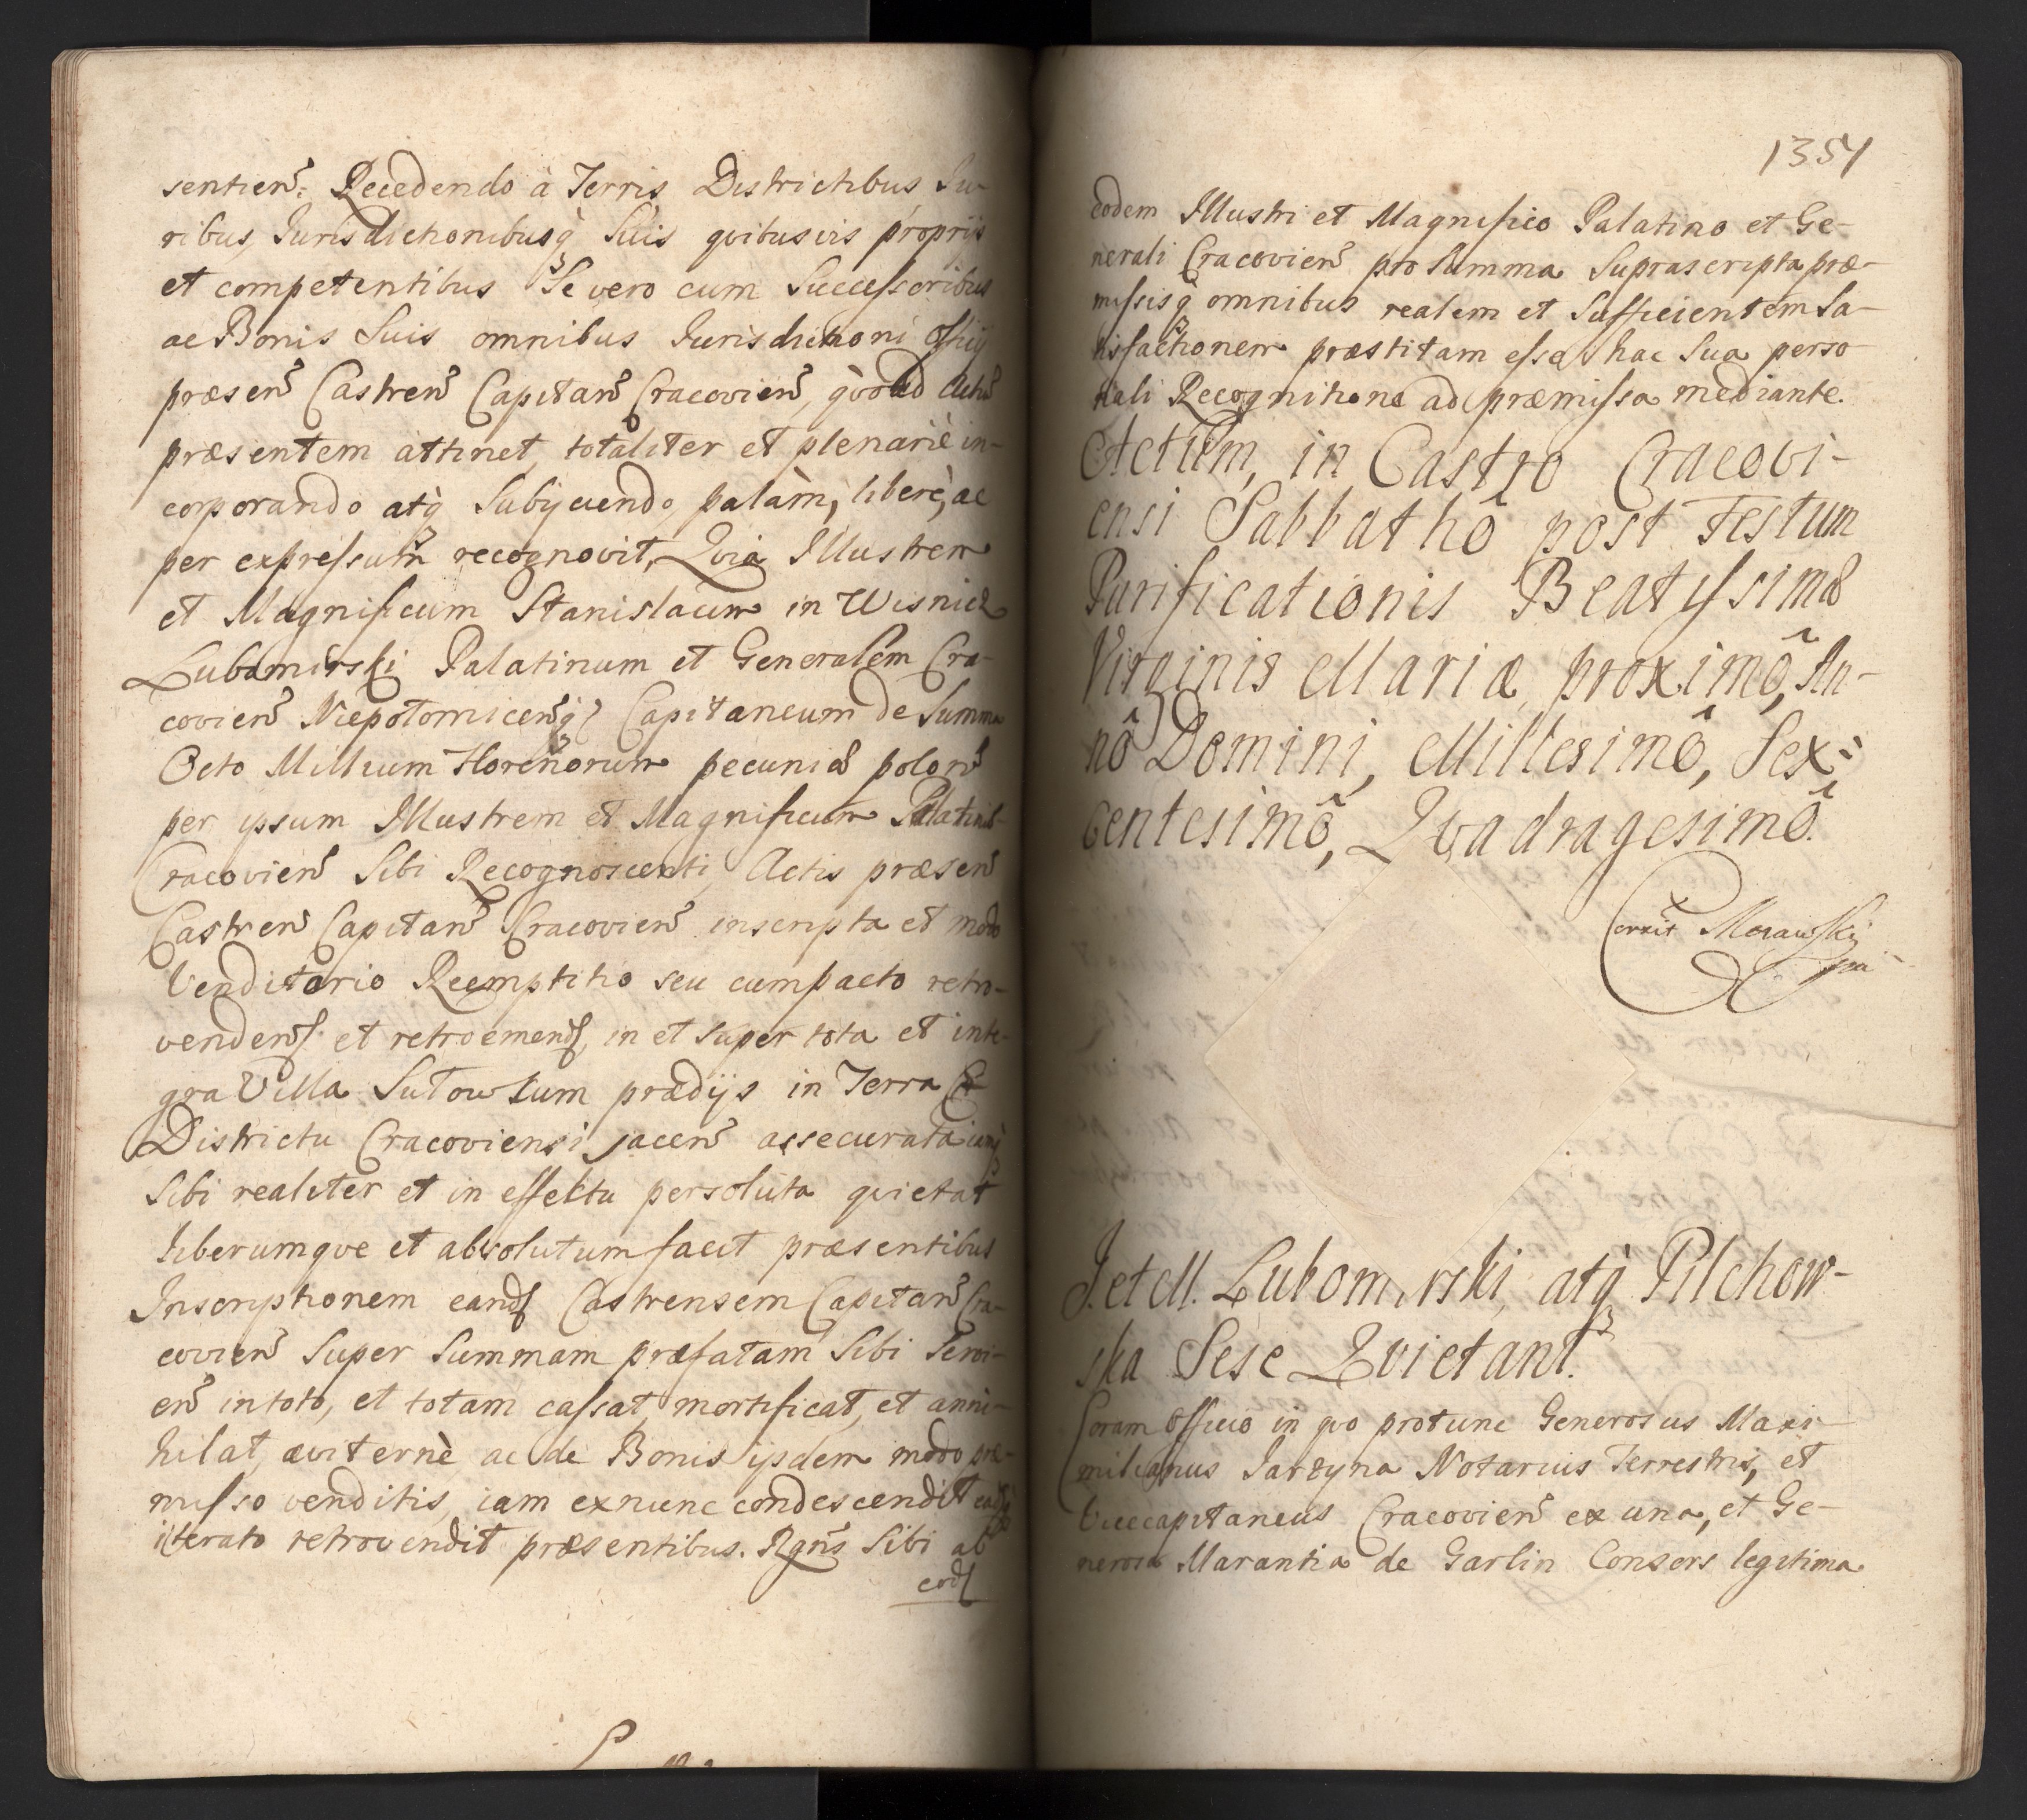 sentień: Recedendo à Terris Districtibus Iu-
ribus, Jurisdictionibusq̀ Suis qvibusvis proprijs
et competentibus Se vero cum Successoribus
ac Bonis Suis omnibus Jurisdictioni Officij
præseñ Castreñ Capitañ Cracovieñ, qvoad Actũ
præsentem attinet, totaliter et plenariè in-
corporando atq̀ Subijciendo, palàm, liberè, ac
per expressum recognovit, Qvia Illustrem
et Magnificum Stanislaum in Wisnicz
Lubomirski Palatinum et Generalem Cra-
covieñ Niepolomiceñq̀ Capitaneum de Summa
Octo Millium Florenorum pecuniæ poloñ
per ipsum Illustrem et Magnificum Palatinũ
Cracovieñ Sibi Recognoscenti, Actis præseñ
Castreñ Capitañ Cracovieñ inscripta et modo
Venditorio Reemptitio seu cum pacto retro-
vendend et retroemend, in et super tota et inte-
gra Villa Sulow cum prædijs in Terra Et
Districtu Cracoviensi jaceñ assecurata
Sibi realiter et in effektu persoluta qvietat
liberumqve et absolutum facit præsentibus
Inscriptionem eand Castrensem Capitañ Cra-
covieñ Super Summam præfatam Sibi Servi-
eñ in toto, et totam cassat, mortificat, et anni-
hilat, æviternè, ac de Bonis ijsdem modo præ-
misso venditis, iam exnunc condescendit
iterato retrovendit præsentibus. Rgñs Sibi ab
eod
1354
eodem Illustri et Magnifico Palatino et Ge-
nerali Cracovieñ pro Summa Suprascripta præ-
missisq̀ omnibus realem et Sufficientem Sa-
tisfactionem præstitam esse, hac Sua perso-
nali Recognitione ad præmissa mediante.
Actum, in Castro Cracovi-
ensi Sabbathô post Festum
Purificationis Beatissimæ
Virginis Mariæ, proximô, An-
nô Domini, Millesimô, Sex-
centesimô, Qvadragesimô.
Corrit Morawski
J. et M. Lubomirski, atq̀ Pilchow-
ska Sese Qvietant.
Coram Officio in qvo protunc Generosus Maxi-
milianus Jarzyna Notarius Terrestris, et
Vicecapitaneus Cracovieñ ex una, et Ge-
nerosa Marantia de Garlin Consors legitima